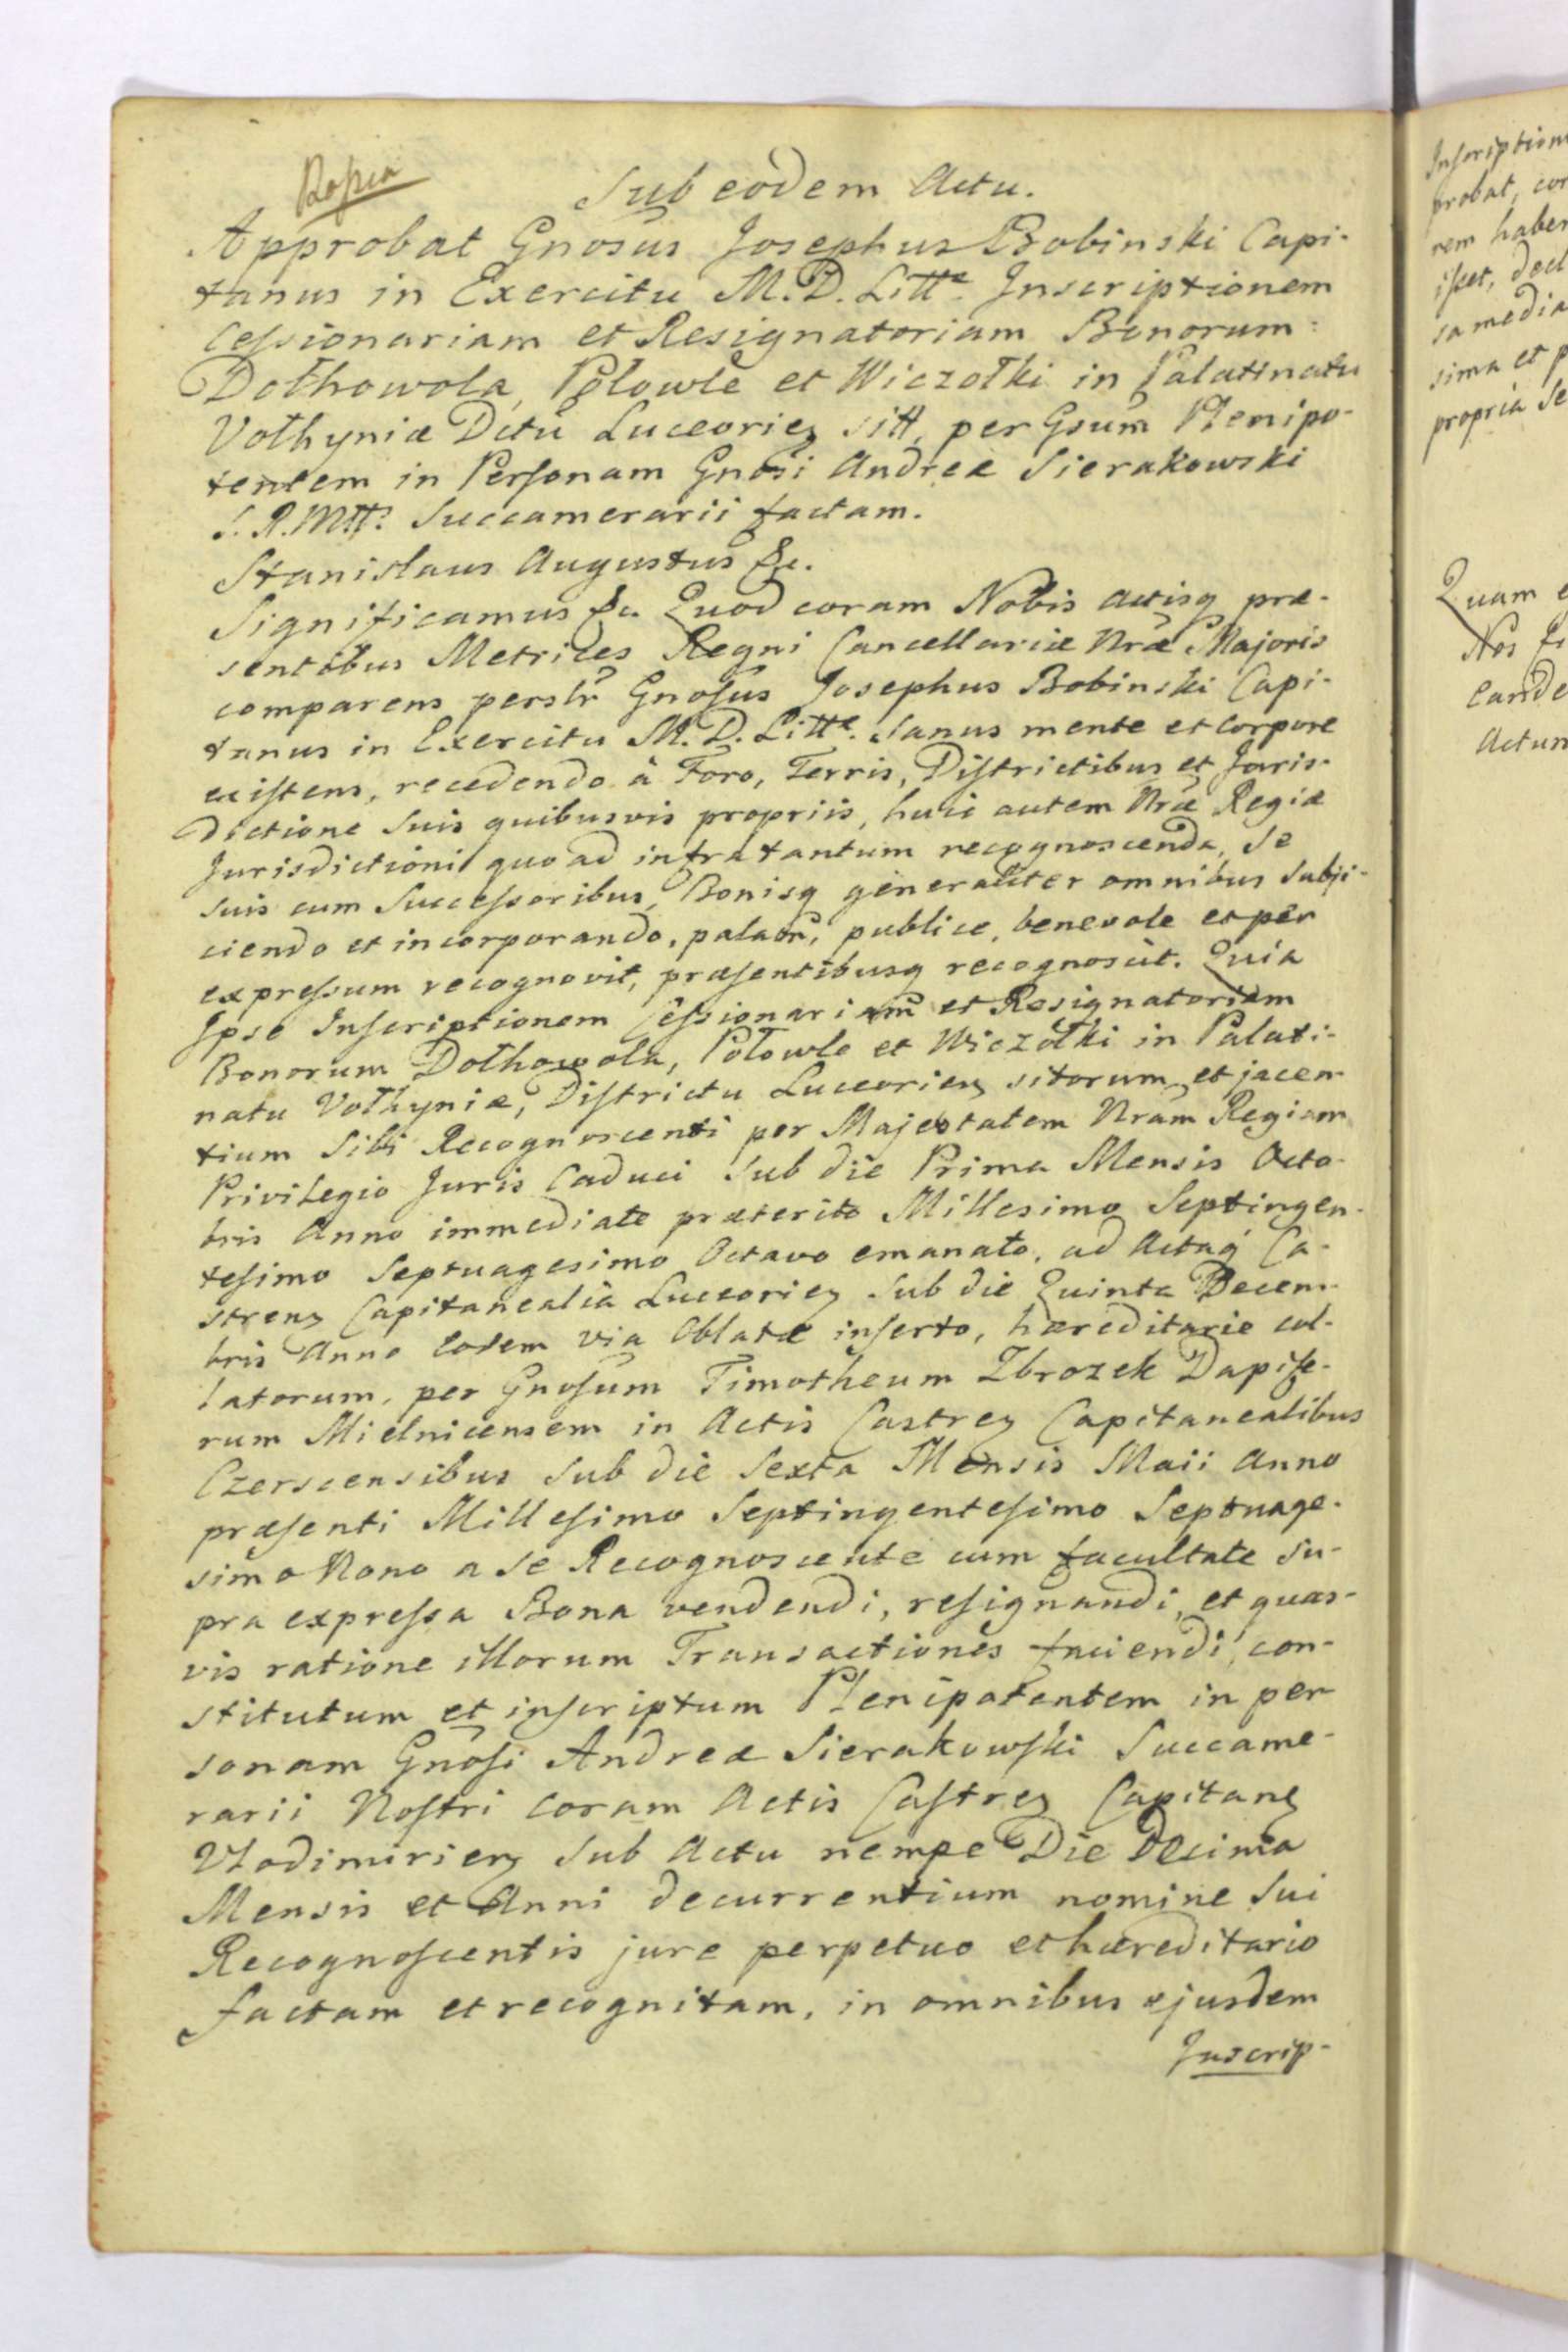 Sub eodem Actu.
Approbat Gnosus Josephus Bobinski Capi-
tanus in Exercitu M. D. Littæ Inscriptionem
Cessionariam et Resignatoriam Bonorum:
Dołhowola, Połowle et Wiczołki in Palatinatu
Vołhyniæ Dctu Luceorien sitt, per Gsum Plenipo-
tentem in Personam Gnosi Andreæ Sierakowski
S. R. Mtt: Succamerarii factam.
Stanislaus Augustus &c.
Significamus &c. Quod coram Nobis actisq præ-
sentibus Metrices Regni Cancellariæ Nræ Majoris
comparens perslr Gnosus Josephus Bobinski Capi-
tanus in Exercitu M. D. Littæ. Sanus mente et corpore
existens, recedendo à Foro, Terris, Districtibus et Juris-
dictione Suis quibusvis propriis, huic autem Nræ Regiæ
Jurisdictioni quo ad infra tantum recognoscenda, Se
suis cum Successoribus, Bonisq generaliter omnibus subji-
ciendo et incorporando, palam, publice, benevole et per
expressum recognovit, præsentibusq recognoscit. Quia
Ipse Inscriptionem Cessionariam et Resignatoriam
Bonorum Dołhowola, Połowle et Wiczołki in Palati-
natu Vołhyniæ, Districtu Luceorien sitorum et jacen-
tium Sibi Recognoscenti per Majestatem Nram Regiam
Privilegio Juris Caduci Sub die Prima Mensis Octo-
bris Anno immediate præterito Millesimo Septingen-
tesimo Septuagesimo Octavo emanato, ad Actaq Ca-
stren Capitanealia Luceorien Sub die Quinta Decem-
bris Anno eodem via Oblatæ inserto, hæreditarie col-
latorum, per Gnosum Timotheum Zbrozek Dapife-
rum Mielnicensem in Actis Castren Capitanealibus
Czerscensibus Sub die Sexta Mensis Maii Anno
præsenti Millesimo Septingentesimo Septuage-
simo Nono a Se Recognoscente cum facultate su-
pra expressa Bona vendendi, resignandi, et quas-
vis ratione illorum Transactiones faciendi, con-
stitutum et inscriptum Plenipotentem in per
sonam Gnosi Andreæ Sierakowski Succame-
rarii Nostri coram Actis Castren Capitan
Vlodimirien Sub Actu nempe Die Decima
Mensis et Anni decurrentium nomine Sui
Recognoscentis jure perpetuo et hæreditario
factam et recognitam, in omnibus ejusdem
Inscrip-
Inscription
probat,
rem haber
isset,
sa media
sima et p
propria Se
Quam e
Nos
Eande
Actum